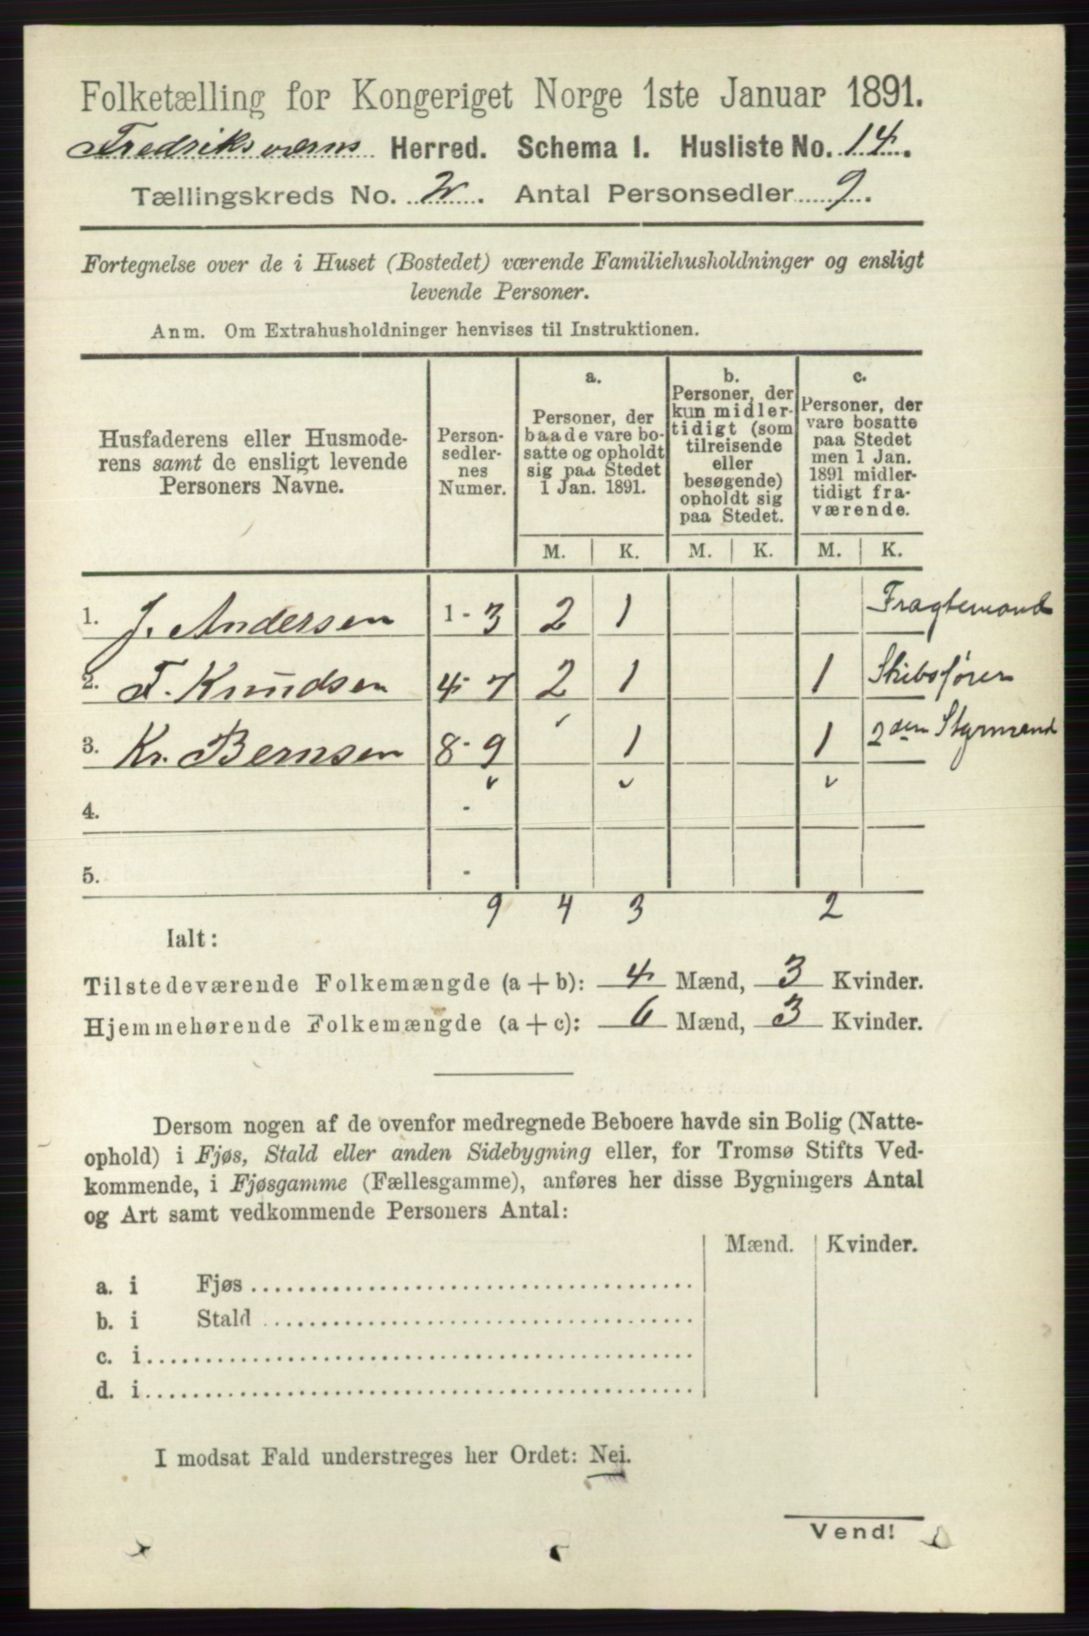 Folketælling for Kongeriget Norge 1ste Januar 1891.
Fredriksværns Herred. Schema I. Husliste No. 14.
Tællingskreds No. 2. Antal Personsedler 9.
Fortegnelse over de i Huset (Bostedet) værende Familiehusholdninger og ensligt
levende Personer.
Anm. Om Extrahusholdninger henvises til Instruktionen.
Husfaderens eller Husmode-
rens samt de ensligt levende
Personers Navne.
Person-
sedler-
nes
Numer.
a.
Personer, der
baade vare bo-
satte og opholdt
sig paa Stedet
1 Jan. 1891.
b.
Personer, der
kun midler-
tidigt (som
tilreisende
eller
besøgende)
opholdt sig
paa Stedet.
c.
Personer, der
vare bosatte
paa Stedet
men 1 Jan.
1891 midler-
tidigt fra-
værende.
M. K. M. K. M. K.
1. J. Andersen 1 - 3 2 1 Fragtemand
2. F. Knudsen 4 - 7 2 1 1 Skibsfører
3. Kr. Bernsen 8 - 9 1 1 2den Styrmand
4. -
5. -
9 4 3 2
Ialt:
Tilstedeværende Folkemængde (a + b): 4 Mænd, 3 Kvinder.
Hjemmehørende Folkemængde (a + c): 6 Mænd, 3 Kvinder.
Dersom nogen af de ovenfor medregnede Beboere havde sin Bolig (Natte-
ophold) i Fjøs, Stald eller anden Sidebygning eller, for Tromsø Stifts Ved-
kommende, i Fjøsgamme (Fællesgamme), anføres her disse Bygningers Antal
og Art samt vedkommende Personers Antal:
Mænd. Kvinder.
a. i Fjøs
b. i Stald
c. i
d. i
I modsat Fald understreges her Ordet: Nei.
Vend!